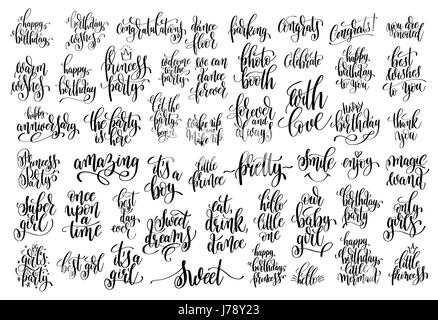 happy
birthday
birthday
wishes
congratulations
dance
floor
parking
congrats
Congrats!
you are
invited
warm
wishes
happy
birthday
princess
party
welcome
to the
party
we can
dance
forever
photo
booth
celebrate
happy
birthday
to you
best
wishes
to you
happy
anniversary
the party
is here
let the
party
begin
wake up
&
make up
forever
and
always
with
love
happy
birthday
thank
you
Princess
Party
amazing
it's a
boy
little
prince
pretty
smile
enjoy
magic
wand
super
girl
once
upon
time
best
day
ever
sweet
dreams
eat,
drink,
dance
hello
little
one
our
baby
girl
birthday
party
only
girls
girl's
party
best girl
it's a
girl
sweet
happy
birthday,
princess
hello
happy
birthday
little
mermaid
little
princess
a
alamy
J78Y23